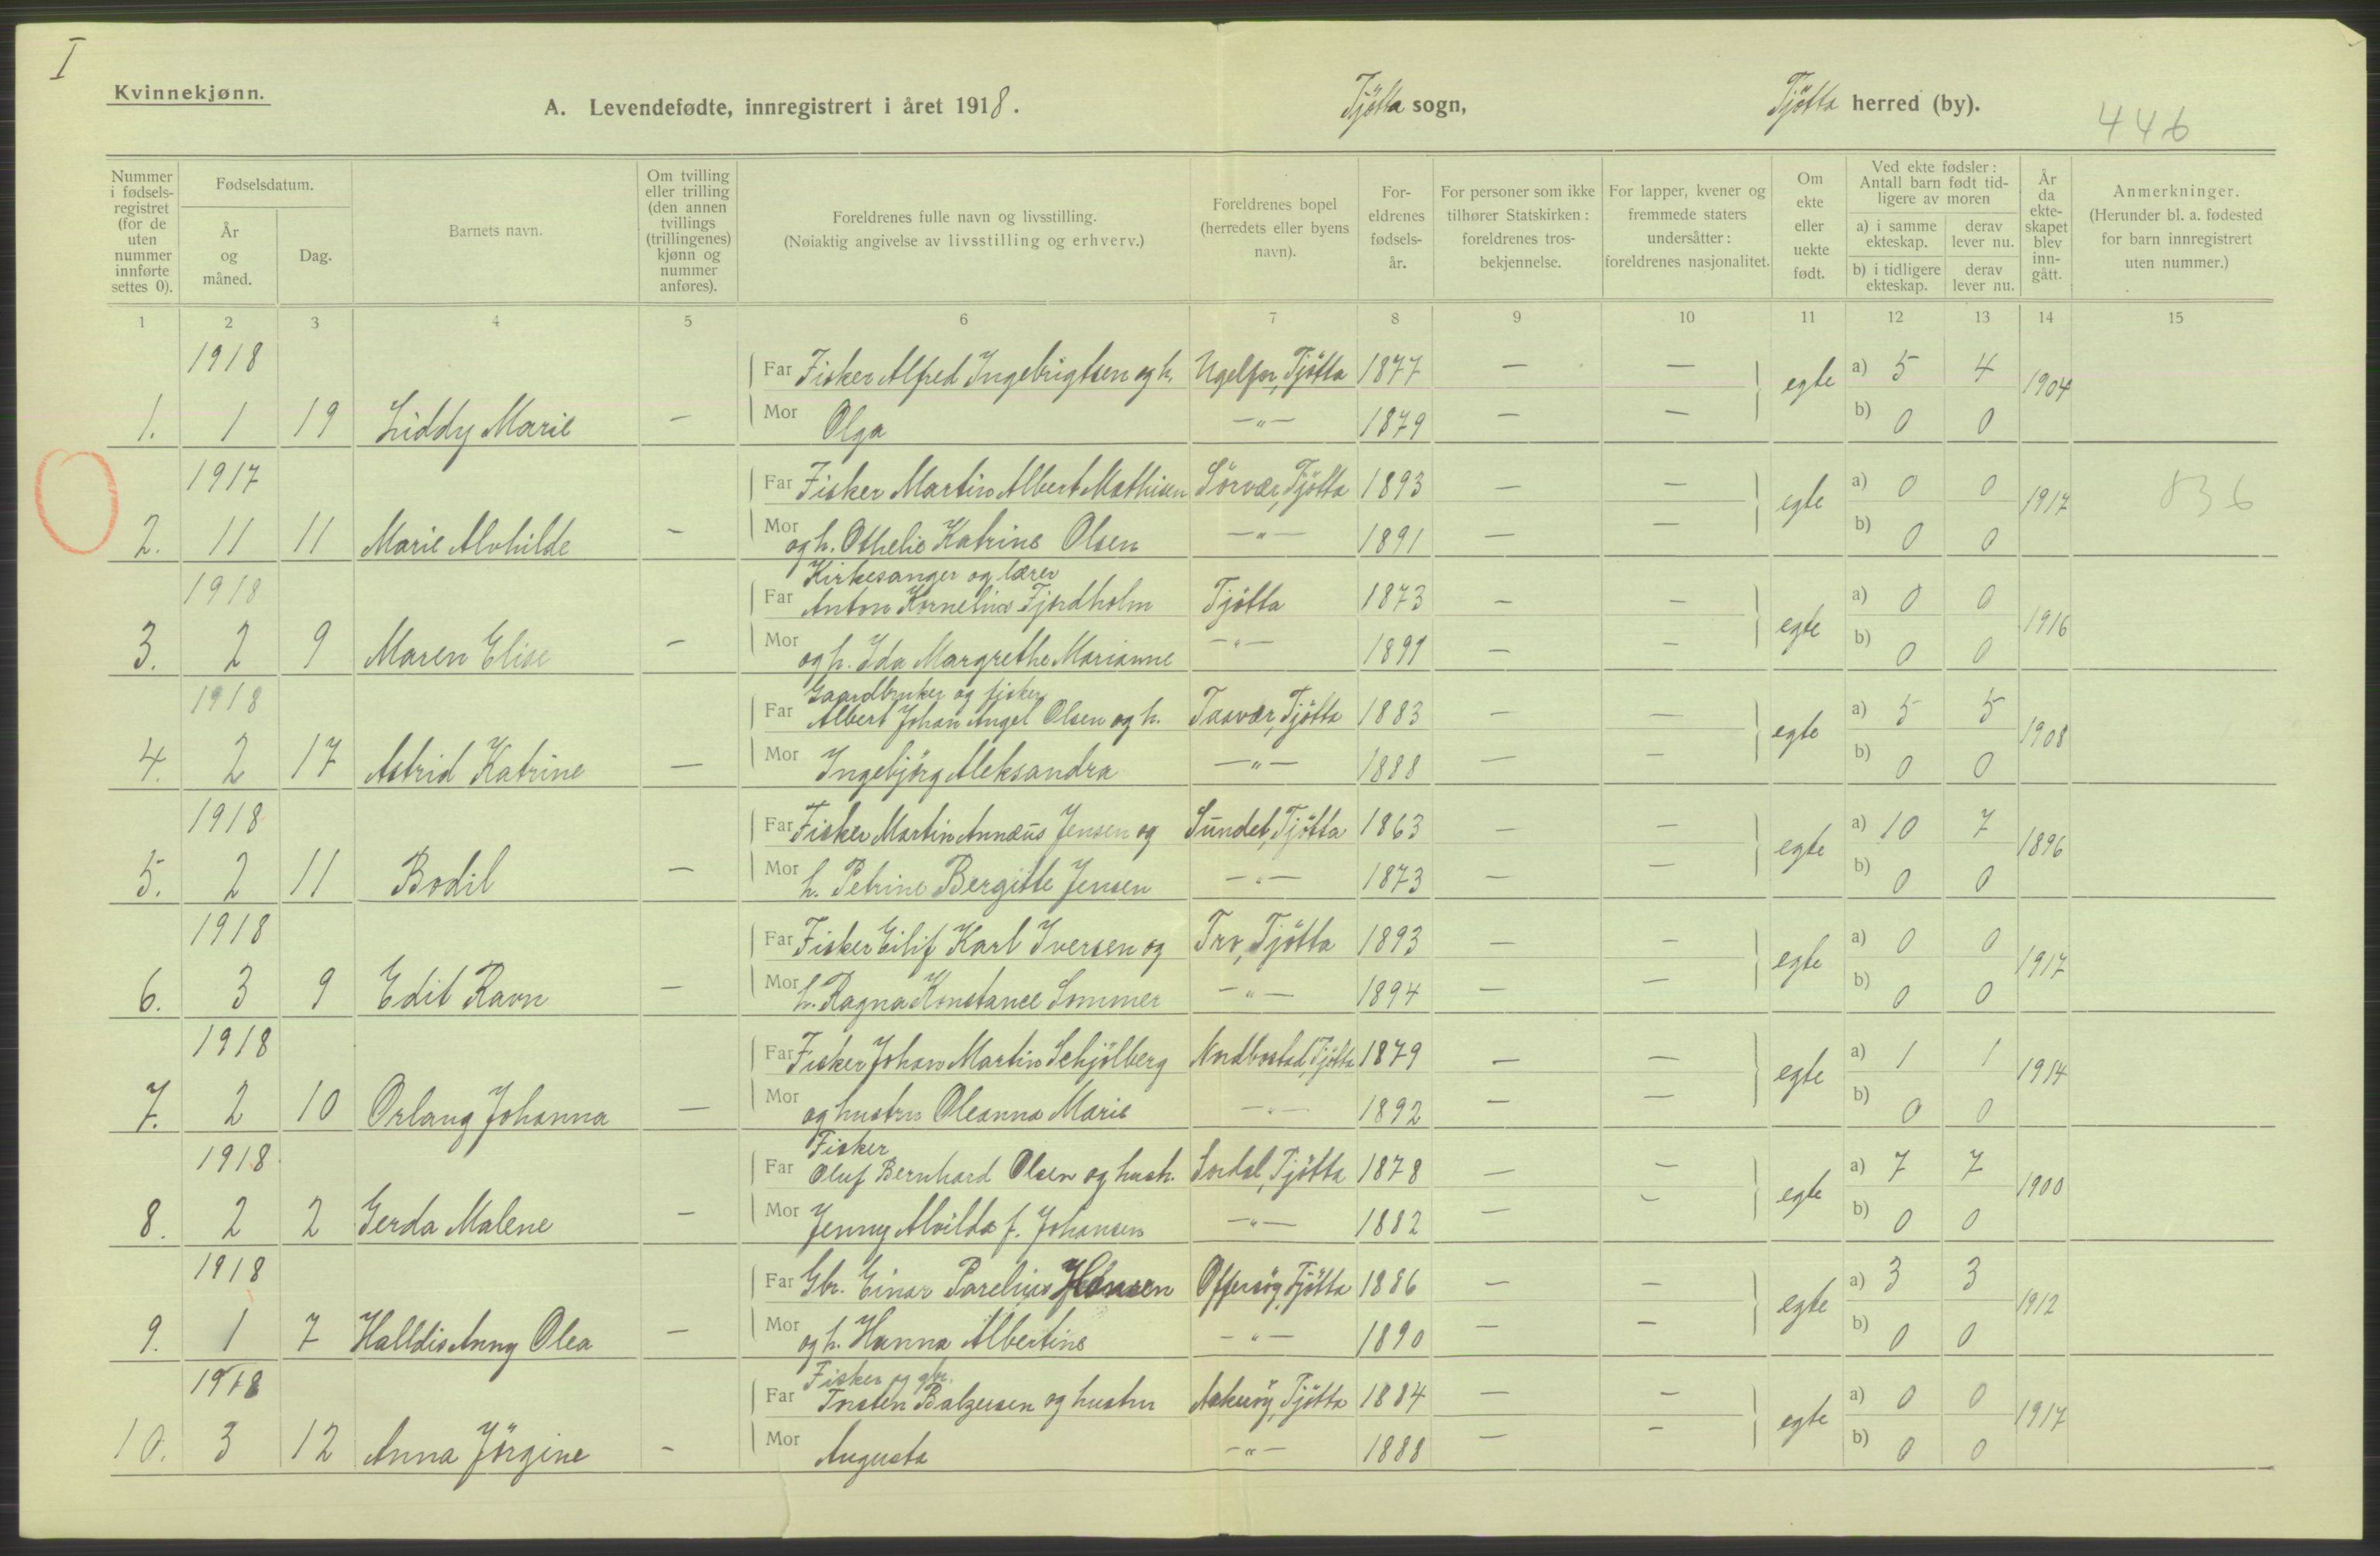 I
Kvinnekjønn.
A. Levendefødte, innregistrert i året 1918. Tjötta sogn, Tjötta herred (by).
446
Nummer i fødselsregistret (for de uten nummer innførte settes 0).
Fødselsdatum.
År og måned.
Dag.
Barnets navn.
Om tvilling eller trilling (den annen tvillings (trillingenes) kjønn og nummer anføres).
Foreldrenes fulle navn og livsstilling.
(Nøiaktig angivelse av livsstilling og erhverv.)
Foreldrenes bopel (herredets eller byens navn).
For-
eldrenes
fødsels-
år.
For personer som ikke
tilhører Statskirken:
foreldrenes tros-
bekjennelse.
For lapper, kvener og
fremmede staters
undersåtter:
foreldrenes nasjonalitet.
Om
ekte
eller
uekte
født.
Ved ekte fødsler:
Antall barn født tid-
ligere av moren
a) i samme ekteskap.
derav lever nu.
b) i tidligere ekteskap.
derav lever nu.
År da ekte-skapet blev inn-gått.
Anmerkninger.
(Herunder bl. a. fødested
for barn innregistrert
uten nummer.)
1 2 3 4 5 6 7 8 9 10 11 12 13 14 15
1918
Far Fisker Alfred Ingebrigtsen og h. Tjötta 1877 — — egte a) 5 4 1904
1. 1 19 Liddy Marie — Mor Olga —"— 1879 — — b) 0 0
1917
Far Fisker Martin Albert Mathisen Sörvær, Tjötta 1893 — — egte a) 0 0 1917 836
2. 11 11 Marie Alvhilde — Mor og h. Othelie Katrine Olsen —"— 1891 — — b) 0 0
1918
Kirkesanger og lærer
Far Anton Kornelius Fjordholm Tjötta 1873 — — egte a) 0 0 1916
3. 2 9 Maren Elise — Mor og h. Ida Margrethe Marianne —"— 1891 — — b) 0 0
1918
Gaardbruker og fisker
Far Albert Johan Angel Olsen og h. Taavær, Tjötta 1883 — — egte a) 5 5 1908
4. 2 17 Astrid Katrine — Mor Ingebjörg Aleksandra —"— 1888 — — b) 0 0
1918
Far Fisker Martin Annæus Jensen og Sundet, Tjötta 1863 — — egte a) 10 7 1896
5. 2 11 Bodil — Mor h. Petrine Bergitte Jensen —"— 1873 — — b) 0 0
1918
Far Fisker Eilif Karl Iversen og Tro, Tjötta 1893 — — egte a) 0 0 1917
6. 3 9 Edit Ravn — Mor h. Ragna Konstance Sommer —"— 1894 — — b) 0 0
1918
Far Fisker Johan Martin Schjölberg Nordbostad, Tjötta 1879 — — egte a) 1 1 1914
7. 2 10 Orlaug Johanna — Mor og hustru Oleanna Marie —"— 1892 — — b) 0 0
1918
Fisker
Far Oluf Bernhard Olsen og hust. Tjötta 1878 — — egte a) 7 7 1900
8. 2 2 Gerda Malene — Mor Jenny Alvilda f. Johansen —"— 1882 — — b) 0 0
1918
Far Gbr. Einar Parelius Hansen Offersöy, Tjötta 1886 — — egte a) 3 3 1912
9. 1 7 Halldis Anny Olea — Mor og h. Hanna Albertine —"— 1890 — — b) 0 0
1918
Fisker og gbr.
Far Torsten Balzersen og hustru Tjötta 1884 — — egte a) 0 0 1917
10. 3 12 Anna Jörgine — Mor Augusta —"— 1888 — — b) 0 0